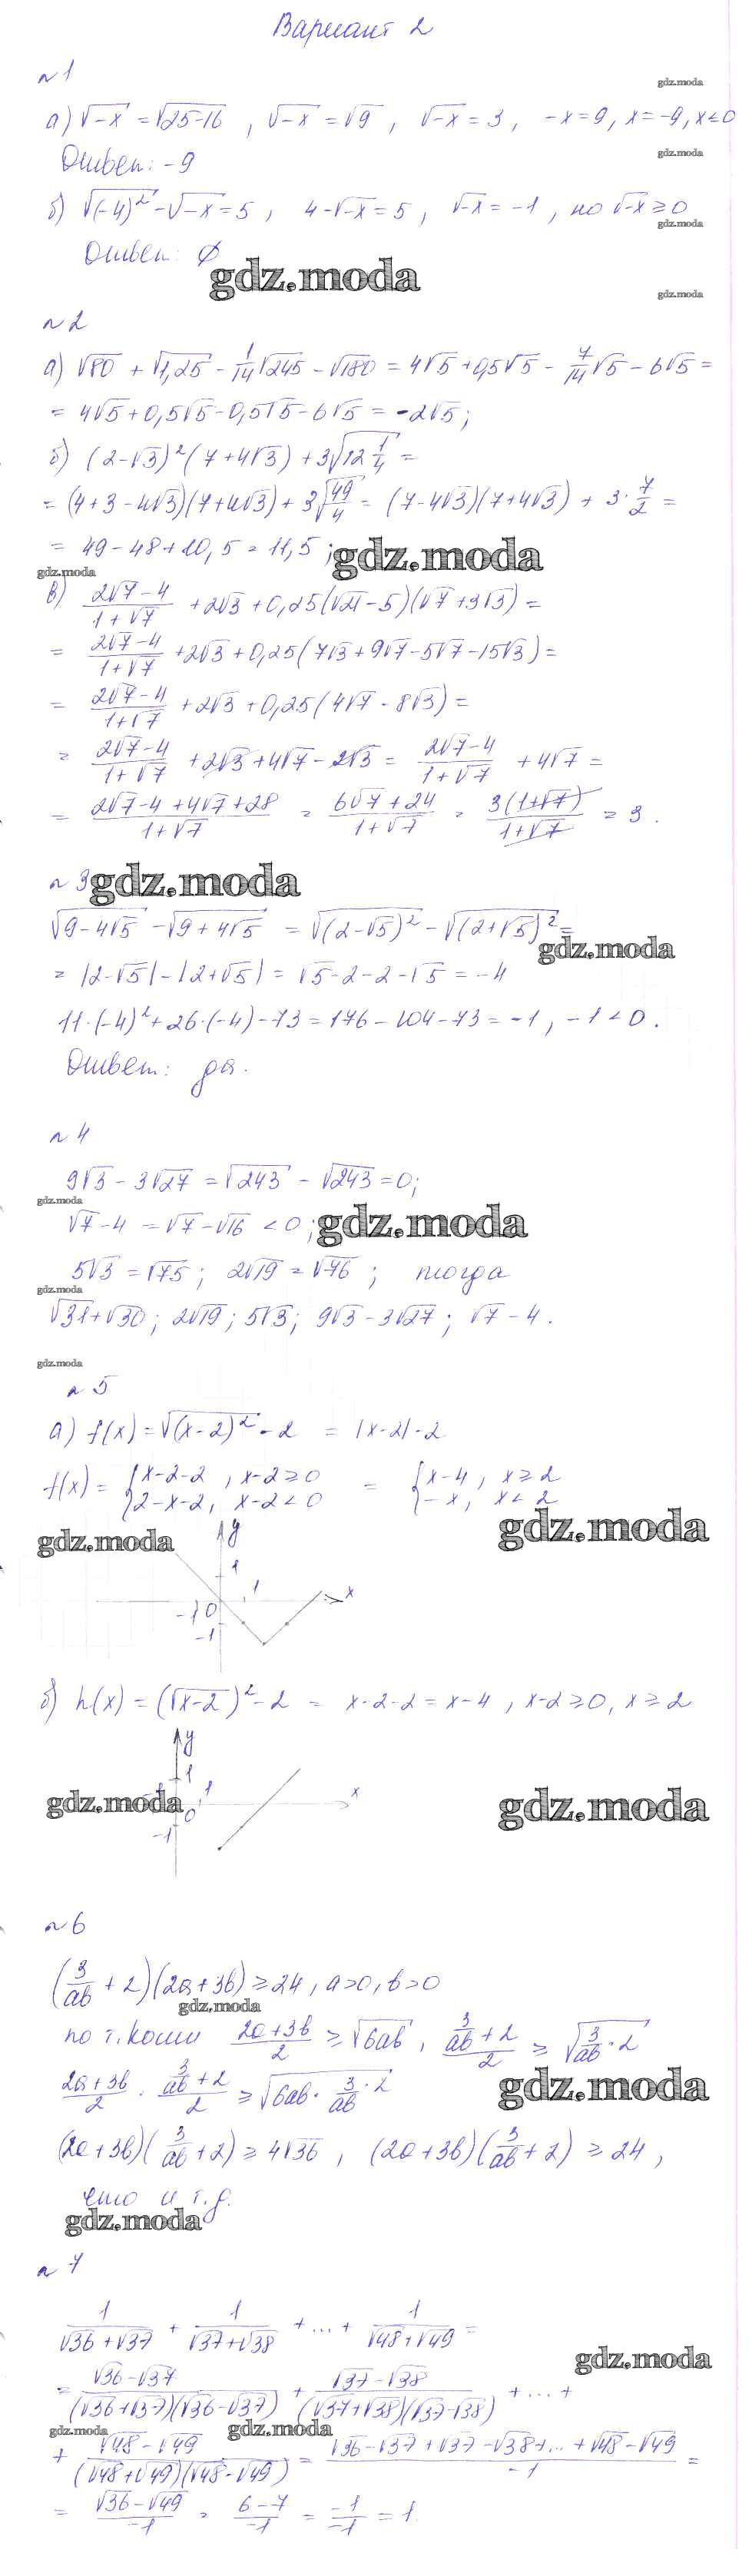 Вариант 2
№1
gdz.moda
а) √-x = √25-16 , √-x = √9 , √-x = 3 , -x = 9, x = -9, x ≤ 0
gdz.moda
Ответ: -9
б) √(-4)² - √-x = 5 , 4-√-x = 5 , √-x = -1 , но √-x ≥ 0
gdz.moda
Ответ: ∅
gdz.moda
gdz.moda
№2
а) √80 + √1,25 - 1/14 √245 - √180 = 4√5 + 0,5√5 - 7/14 √5 - 6√5 =
= 4√5 + 0,5√5 - 0,5√5 - 6√5 = -2√5;
б) (2-√3)² (7+4√3) + 3√12 1/4 =
= (4+3-4√3)(7+4√3) + 3√49/4 = (7-4√3)(7+4√3) + 3 · 7/2 =
= 49 - 48 + 10,5 = 11,5 ;
gdz.moda
gdz.moda
в) (2√7-4)/(1+√7) + 2√3 + 0,25(√21-5)(√7+3√3) =
= (2√7-4)/(1+√7) + 2√3 + 0,25(7√3+9√7-5√7-15√3) =
= (2√7-4)/(1+√7) + 2√3 + 0,25(4√7-8√3) =
= (2√7-4)/(1+√7) + 2√3 + 4√7 - 2√3 = (2√7-4)/(1+√7) + 4√7 =
= (2√7-4+4√7+28)/(1+√7) = (6√7+24)/(1+√7) = 3(1+√7)/(1+√7) = 3 .
№3
gdz.moda
√9-4√5 - √9+4√5 = √(2-√5)² - √(2+√5)² =
gdz.moda
= |2-√5| - |2+√5| = √5-2-2-√5 = -4
11·(-4)² + 26·(-4) - 73 = 176 - 104 - 73 = -1 , -1 < 0 .
Ответ: да.
№4
9√3 - 3√27 = √243 - √243 = 0;
gdz.moda
√7-4 = √7-√16 < 0 ;
gdz.moda
5√3 = √75 ; 2√19 = √76 ; тогда
gdz.moda
√31+√30 ; 2√19 ; 5√3 ; 9√3-3√27 ; √7-4 .
gdz.moda
№5
а) f(x) = √(x-2)² - 2 = |x-2| - 2
f(x) = { x-2-2 , x-2 ≥ 0 = { x-4 , x ≥ 2
2-x-2, x-2 < 0 -x, x < 2
gdz.moda
gdz.moda
y
1
1
x
-1 0
-1
б) h(x) = (√x-2)² - 2 = x-2-2 = x-4 , x-2 ≥ 0, x ≥ 2
y
1
1
x
gdz.moda
gdz.moda
0
-1
№6
(3/ab + 2)(2a+3b) ≥ 24 , a>0, b>0
gdz.moda
по т. Коши (2a+3b)/2 ≥ √6ab , (3/ab + 2)/2 ≥ √3/ab · 2
(2a+3b)/2 · (3/ab + 2)/2 ≥ √6ab · 3/ab · 2
gdz.moda
(2a+3b)(3/ab + 2) ≥ 4√36 , (2a+3b)(3/ab + 2) ≥ 24 ,
что и т.д.
gdz.moda
№7
1/(√36+√37) + 1/(√37+√38) + ... + 1/(√48+√49) =
gdz.moda
= (√36-√37)/((√36+√37)(√36-√37)) + (√37-√38)/((√37+√38)(√37-√38)) + ... +
gdz.moda
gdz.moda
+ (√48-√49)/((√48+√49)(√48-√49)) = (√36-√37+√37-√38+...+√48-√49)/-1 =
= (√36-√49)/-1 = (6-7)/-1 = -1/-1 = 1.